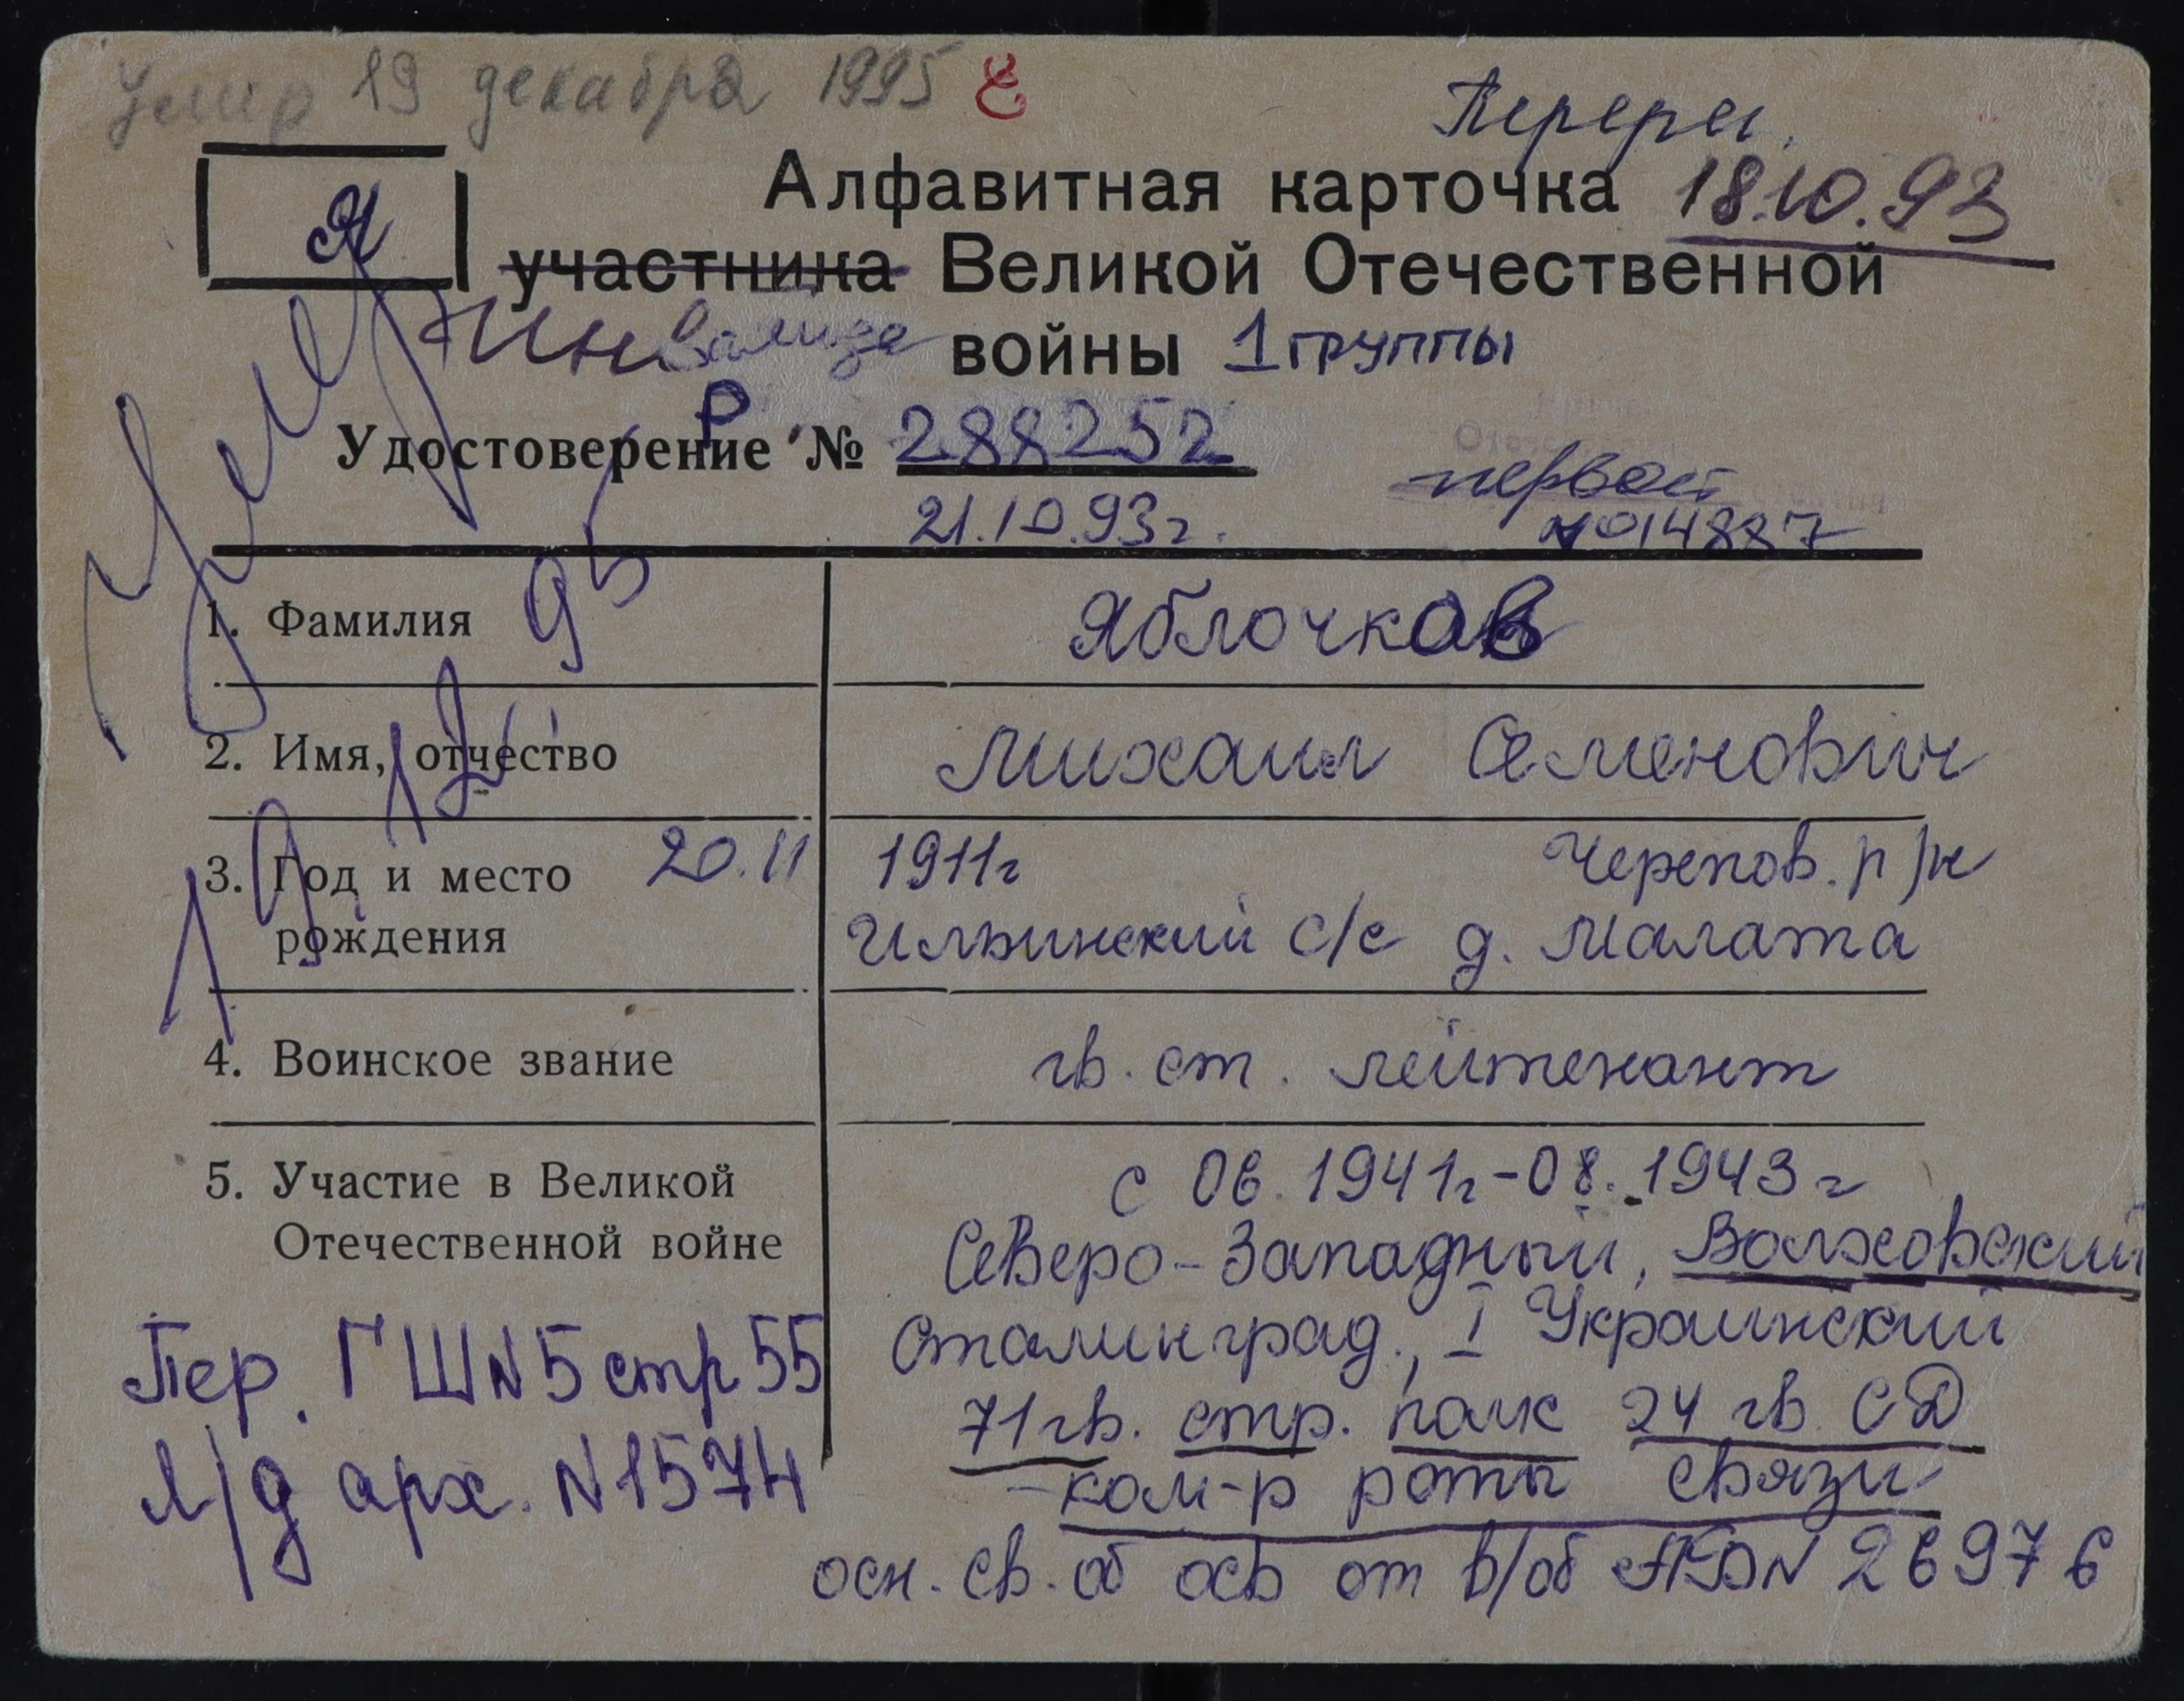 Умер 19 декабря 1995
Перерег.
Я
Алфавитная карточка 18.10.93
участника Великой Отечественной
Инвалида войны 1 группы
Р
Удостоверение № 288252
21.10.93г. первой
№ 014887
Умер 19.12.95
1. Фамилия Яблочков
2. Имя, отчество Михаил Семенович
3. Год и место 20.11 1911г Черепов. р/н
рождения Ильинский с/с д. Малата
4. Воинское звание гв. ст. лейтенант
5. Участие в Великой с 06.1941г-08.1943г
Отечественной войне Северо-Западный, Волховский
Сталинград., I Украинский
Пер. ГШ N 5 стр 55 71 гв. стр. полк 24 гв. СД
л/д арх. N 1574 - ком-р роты связи
осн. св. об осв от в/об N 26976